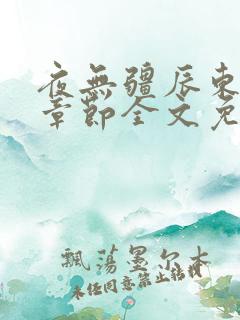 夜無疆辰東
章節全文免
飄蕩墨尔本
未经同意禁止转载